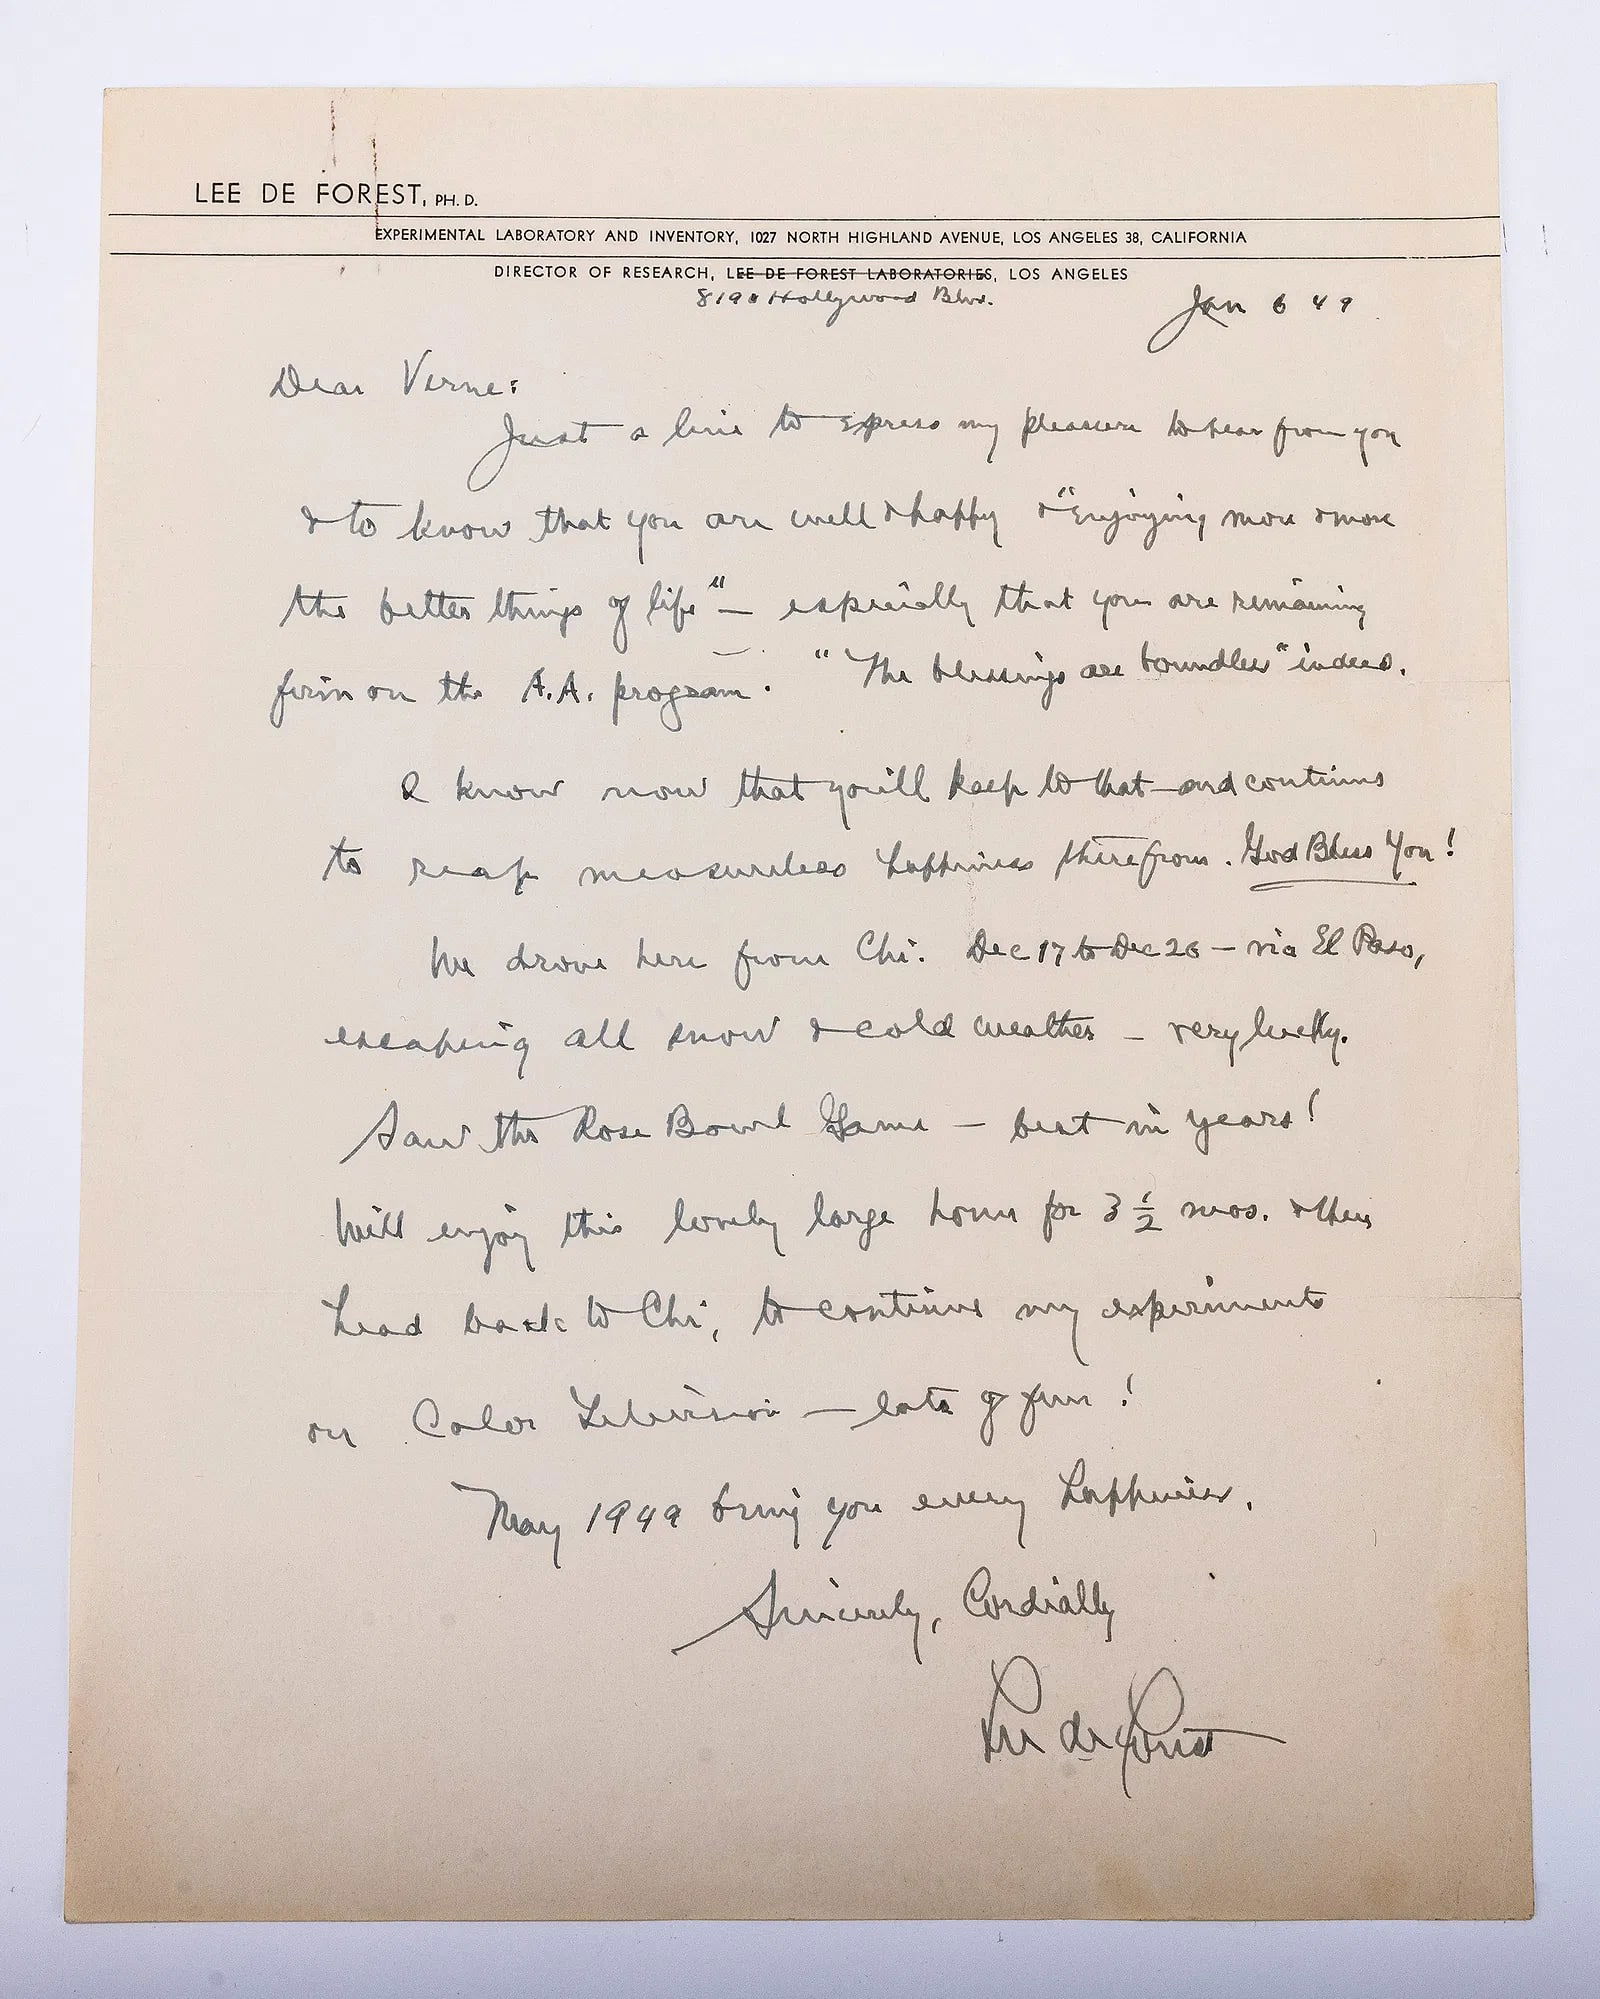 LEE DE FOREST, PH. D.
EXPERIMENTAL LABORATORY AND INVENTORY, 1027 NORTH HIGHLAND AVENUE, LOS ANGELES 38, CALIFORNIA
DIRECTOR OF RESEARCH, LEE DE FOREST LABORATORIES, LOS ANGELES
8190 Hollywood Blvd.
Jan 6 49
Dear Verne:
Just a line to express my pleasure to hear from you
& to know that you are well & happy & "Enjoying more & more
the better things of life" — especially that you are remaining
firm on the A.A. program. "The blessings are boundless" indeed.
I know now that you'll keep to that and continue
to reap measureless happiness therefrom. God Bless You!
We drove here from Chi. Dec 17 to Dec 26 — via El Paso,
escaping all snow & cold weather — very lucky.
Saw the Rose Bowl Game — best in years!
Will enjoy this lovely large home for 3 1/2 mos. & then
head back to Chi, to continue my experiments
on Color Television — lots of fun!
May 1949 bring you every happiness.
Sincerely, Cordially
Lee de Forest